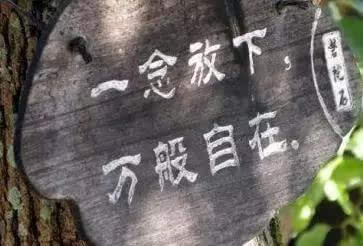 一念放下，
万般自在．